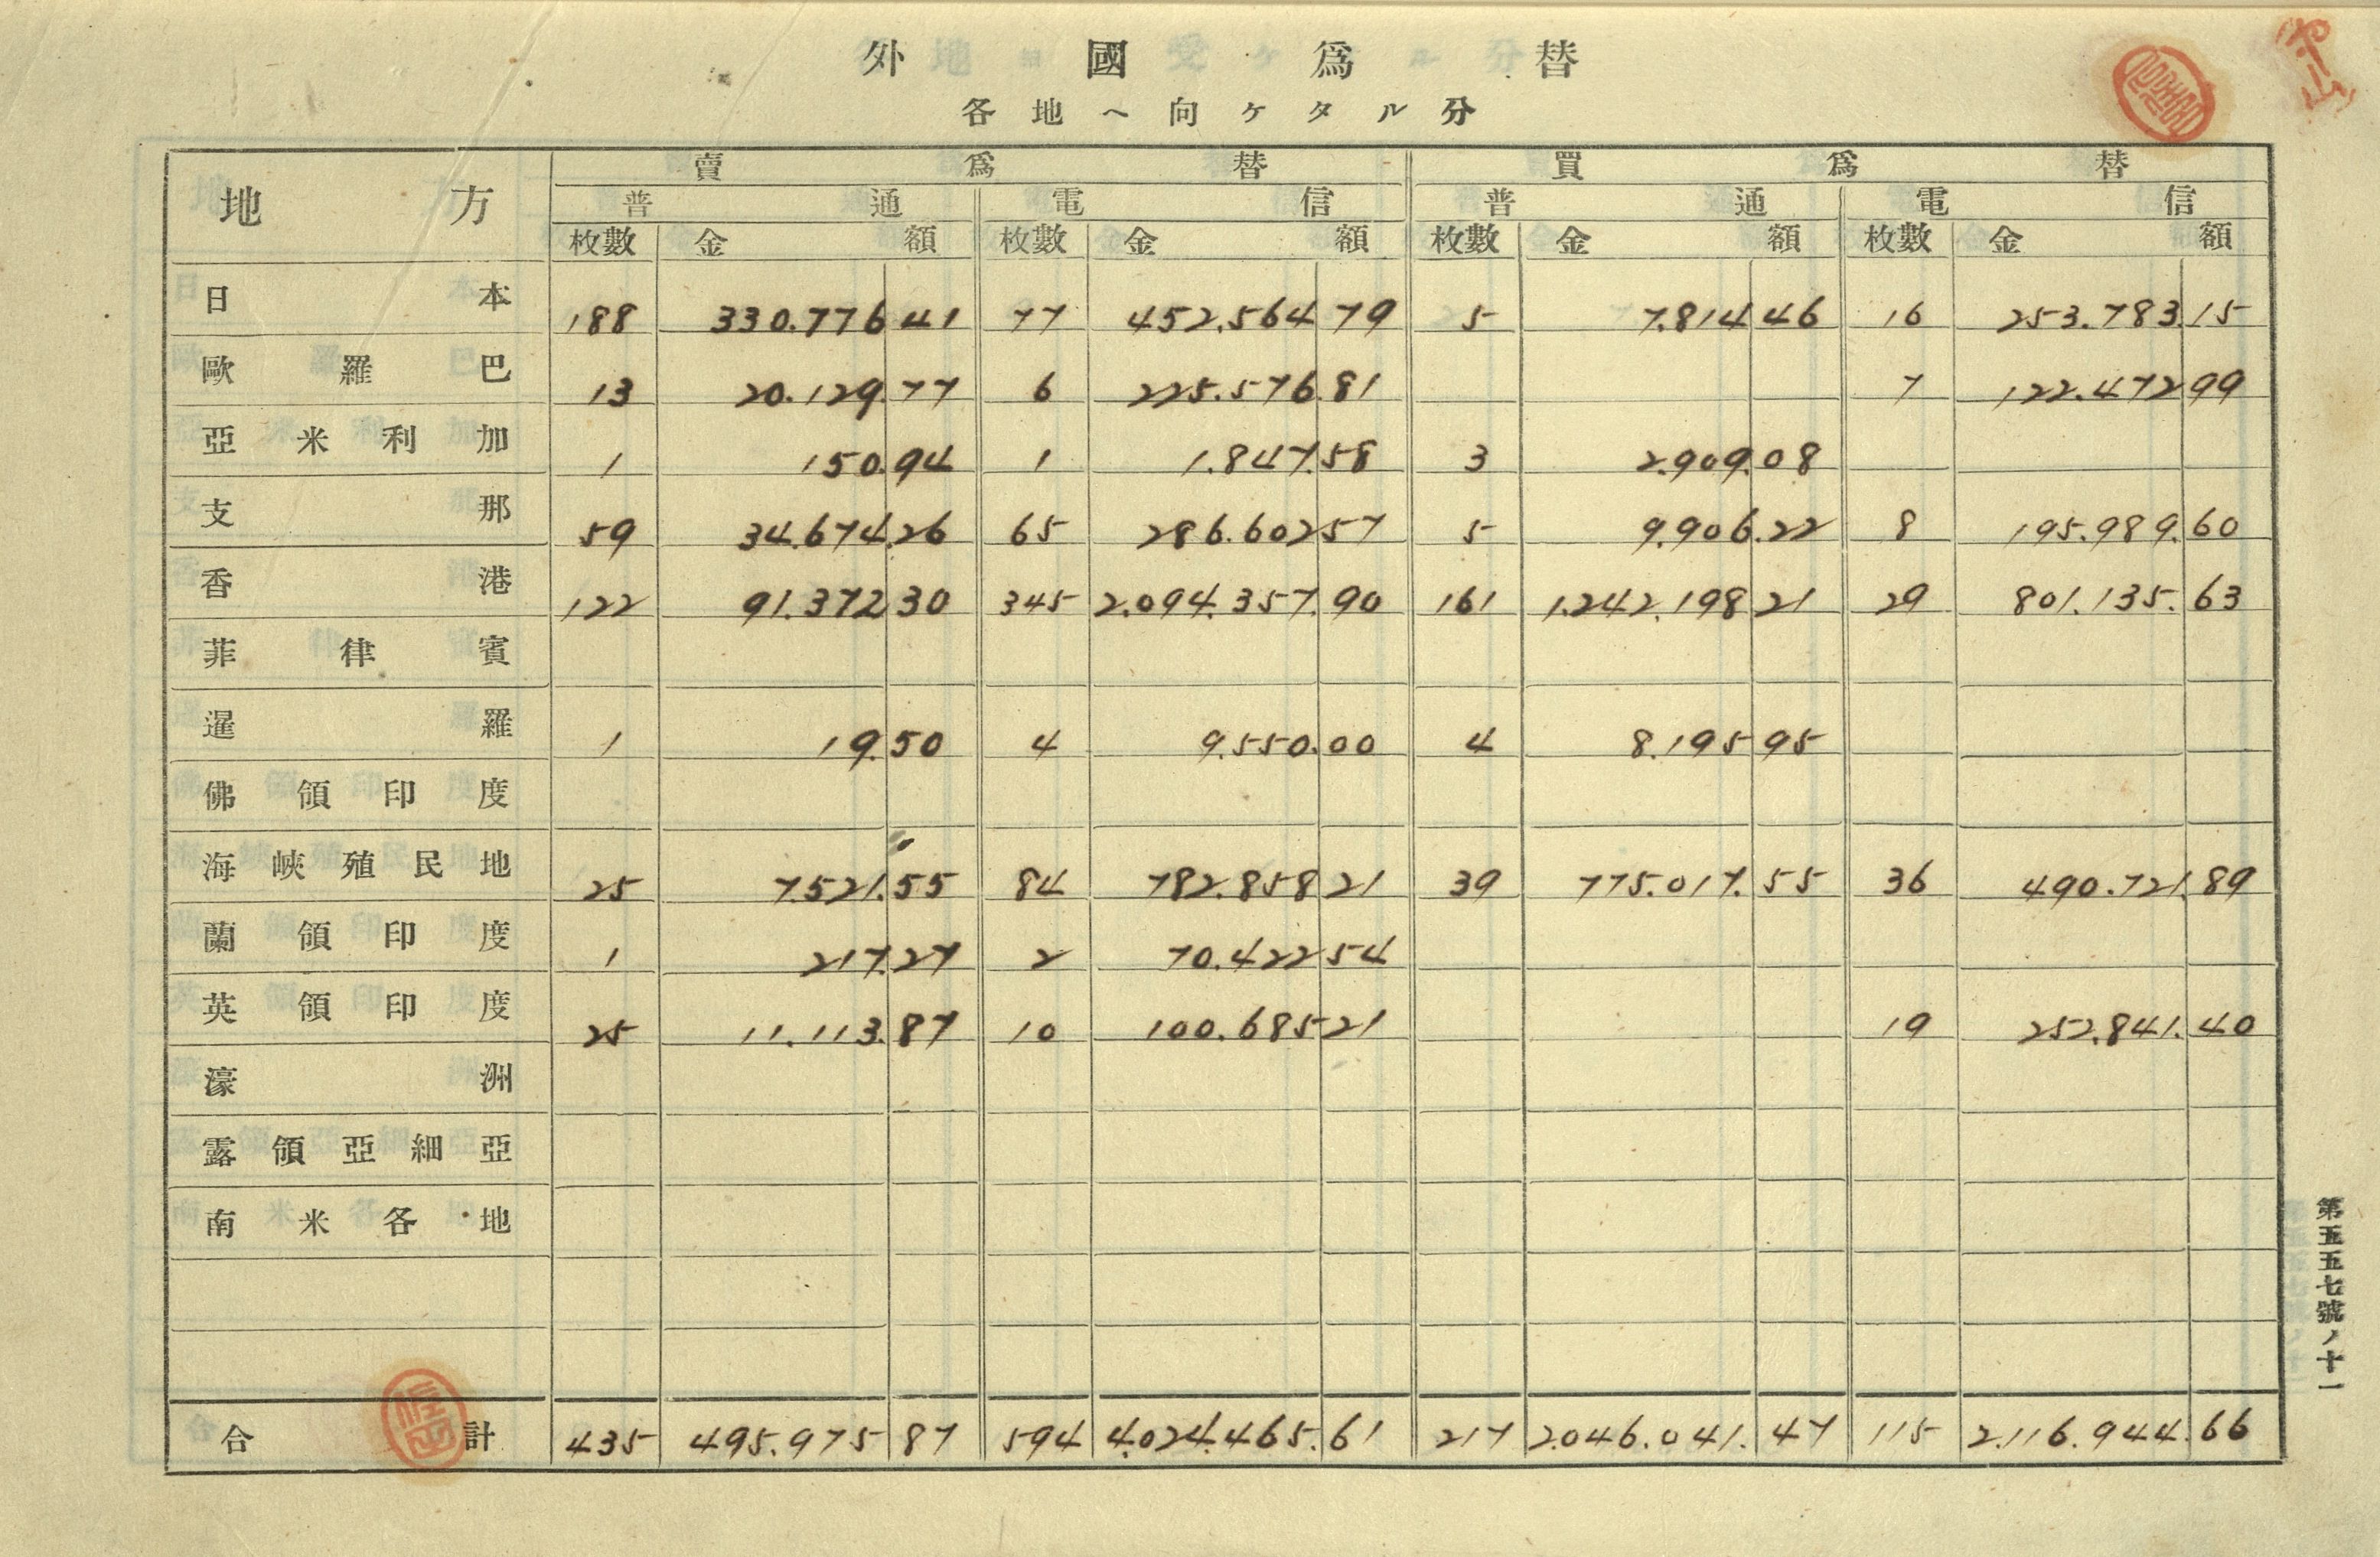 外國為替
各地へ向ケタル分
地方 賣為替 買為替
普通 電信 普通 電信
枚數 金額 枚數 金額 枚數 金額 枚數 金額
日本 188 330.776 41 77 452.564 79 5 7.814 46 16 253.783.15
歐羅巴 13 20.129.77 6 225.576.81 7 122.472 99
亞米利加 1 150.94 1 1.847.58 3 2.909.08
支那 59 34.674.26 65 286.602 57 5 9.906.22 8 195.989.60
香港 122 91.372 30 345 2.094.357.90 161 1.242.198 21 29 801.135.63
菲律賓
暹羅 1 19.50 4 9.550.00 4 8.195 95
佛領印度
海峽殖民地 25 7.521.55 84 782.858 21 39 775.017.55 36 490.721.89
蘭領印度 1 217.27 2 70.422 54
英領印度 25 11.113.87 10 100.685 21 19 252.841.40
濠洲
露領亞細亞
南米各地
合計 435 495.975 87 594 4.024.465.61 217 2.046.041.47 115 2.116.944.66
第五五七號ノ十一